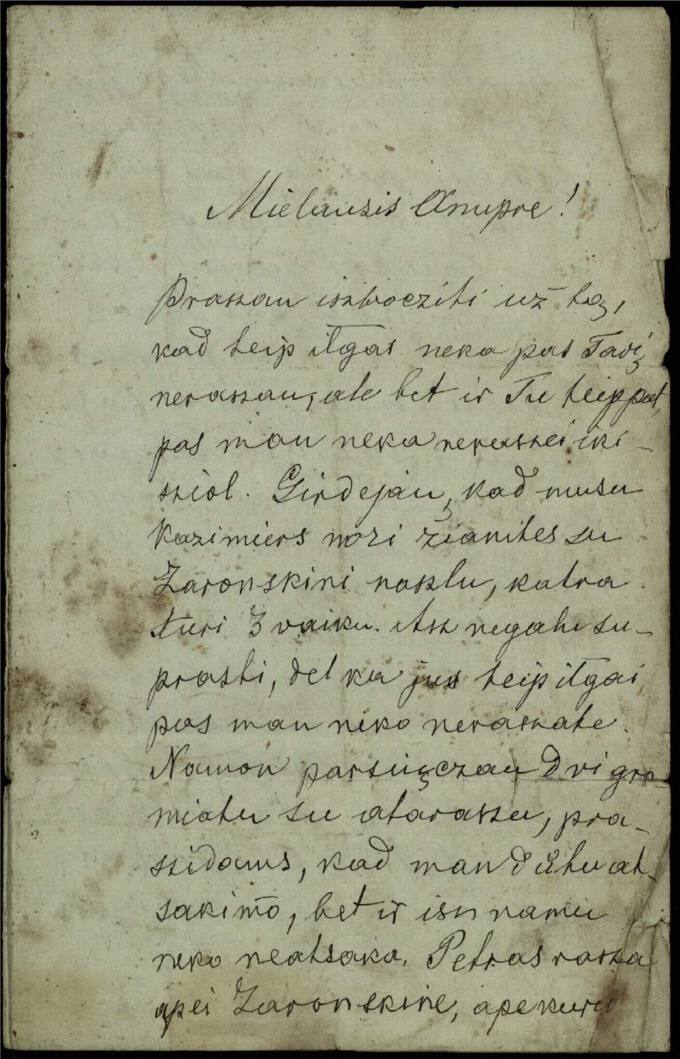 Mielausis Anupre!
Praszau iszbocziti už tą,
kad teip ilgas neka pas Tavį
neraszau, ale bet ir Tu teippat,
pas man neka neraszei iki-
sziol. Girdejau, kad musu
Kazimiers nori žianites su
Zaronskini naszlu, katra
turi 3 vaiku. Asz negalu su-
prasti, del ka jus teip ilgai
pas man niko neraszate.
Namon parsiųczau dvi gro-
miatu su ataraszu, pra-
szidams, kad man dutu at-
sakimo, bet ir isz namu
neko neatsaka. Petras rasza
apei Zaronskine, apekuru